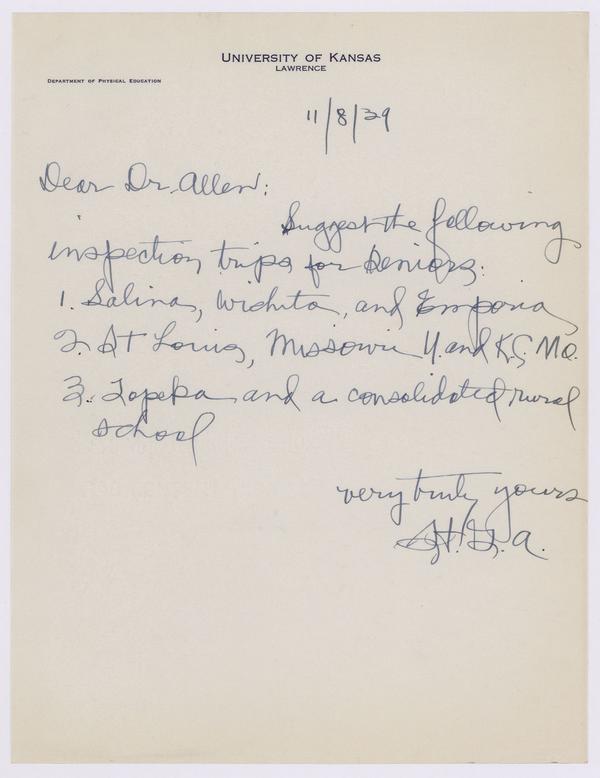 UNIVERSITY OF KANSAS
LAWRENCE
DEPARTMENT OF PHYSICAL EDUCATION
11/8/39
Dear Dr. Allen:
Suggest the following
inspection trips for Seniors:
1. Salina, Wichita, and Emporia
2. St Louis, Missouri U. and K.C. Mo.
3. Topeka and a consolidated rural
school
very truly yours
H. G. A.